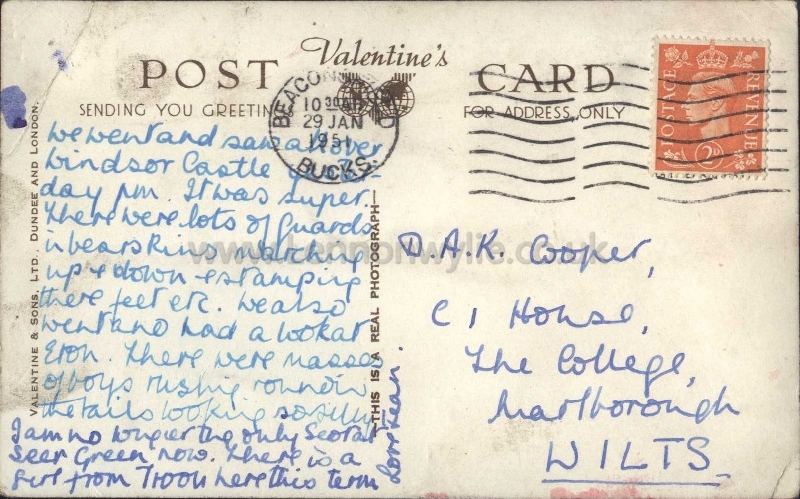 Valentine's
POST CARD
SENDING YOU GREETINGS
FOR ADDRESS ONLY
BEACONSFIELD
10 30 AM
29 JAN
1951
BUCKS.
POSTAGE REVENUE
2D
We went and saw all over
Windsor Castle
day pm. It was super.
There were lots of Guards
in bearskins marching
up & down & stamping
there feet etc. We also
went and had a look at
Eton. There were masses
of boys rushing round in
the tails looking so silly
I am no longer the only Scot at
Seer Green now. There is a
girl from Troon here this term
Love Jean.
D.A.K. Cooper,
C1 House,
The College,
Marlborough
WILTS.
VALENTINE & SONS, LTD., DUNDEE AND LONDON.
THIS IS A REAL PHOTOGRAPH